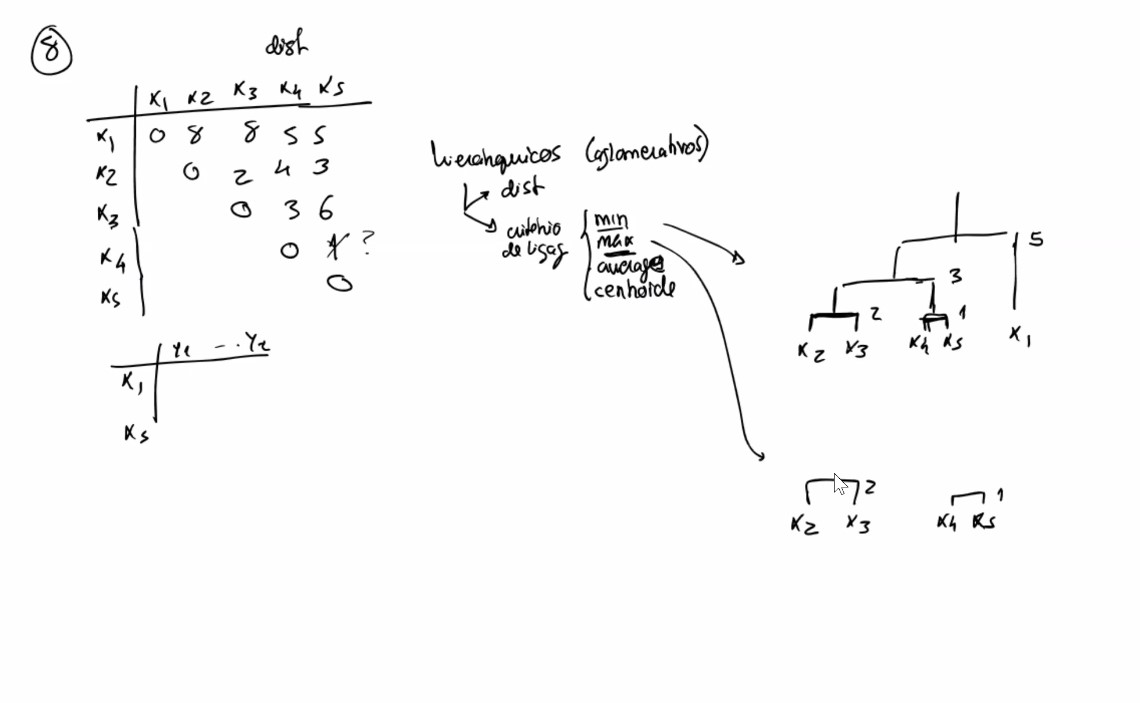 8
dist
x1 x2 x3 x4 x5
x1 0 8 8 5 5
x2 0 2 4 3
x3 0 3 6
x4 0 1 ?
x5 0
hierárquicos (aglomerativos)
dist
critério de ligaç
min
max
average
centroide
5
3
2 1
x2 x3 x4 x5 x1
x1
x5
2 1
x2 x3 x4 x5